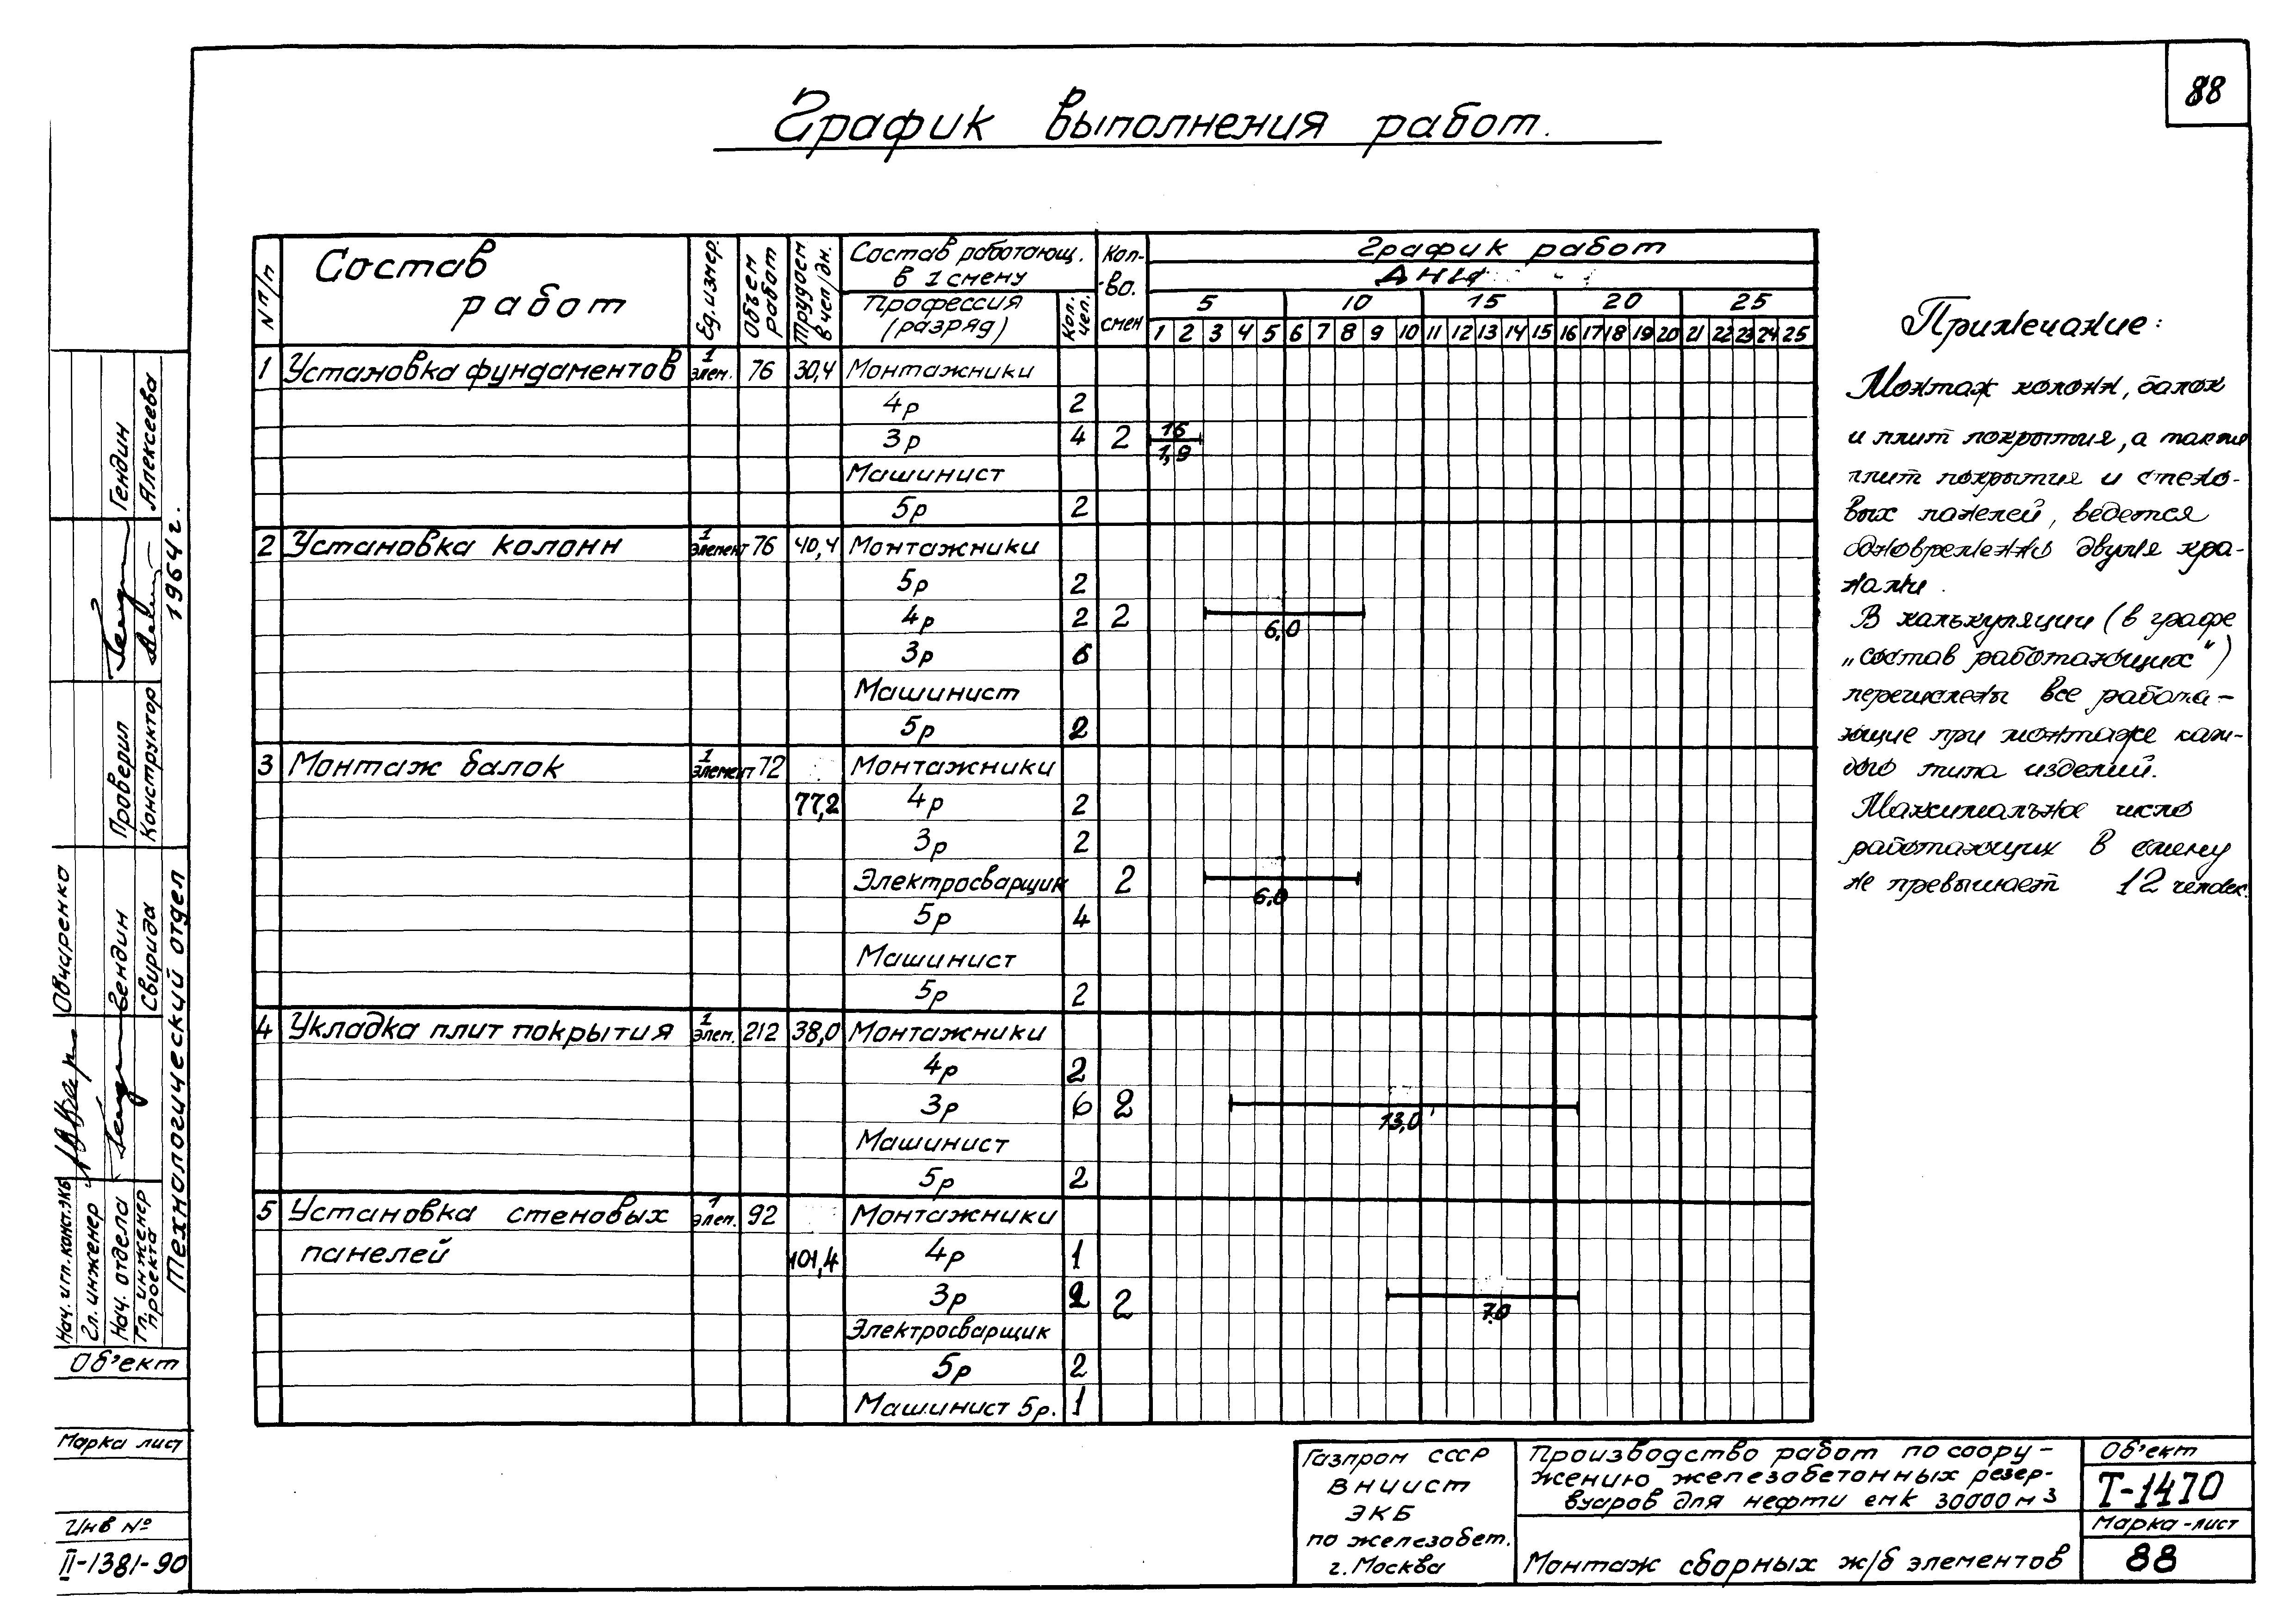 88
График выполнения работ.
N п/п
Состав
работ
Ед. измер.
Объем
работ
Трудоем
в чел/дн.
Состав работающ.
в 1 смену
Профессия
(разряд)
Кол.
чел.
Кол-
во.
смен
График работ
Дни
5 10 15 20 25
1 2 3 4 5 6 7 8 9 10 11 12 13 14 15 16 17 18 19 20 21 22 23 24 25
1 Установка фундаментов 1 элем. 76 30,4 Монтажники
4р 2
3р 4 2 16
1,9
Машинист
5р 2
2 Установка колонн 1 элемент 76 40,4 Монтажники
5р 2
4р 2 2 6,0
3р 6
Машинист
5р 2
3 Монтаж балок 1 элемент 72 Монтажники
77,2 4р 2
3р 2
Электросварщик 2 6,0
5р 4
Машинист
5р 2
4 Укладка плит покрытия 1 элем. 212 38,0 Монтажники
4р 2
3р 6 2 13,0
Машинист
5р 2
5 Установка стеновых 1 элем. 92 Монтажники
панелей 101,4 4р 1
3р 2 2 7,0
Электросварщик
5р 2
Машинист 5р. 1
Примечание:
Монтаж колонн, балок
и плит покрытия, а также
плит покрытия и стено-
вых панелей, ведется
одновременно двумя кра-
нами.
В калькуляции (в графе
„состав работающих")
перечислены все работа-
ющие при монтаже каж-
дого типа изделий.
Максимальное число
работающих в смену
не превышает 12 человек.
Газпром СССР
ВНИИСТ
ЭКБ
по железобет.
г. Москва
Производство работ по соору-
жению железобетонных резер-
вуаров для нефти емк 30000 м3
Монтаж сборных ж/б элементов
Об'ект
Т-1470
Марка-лист
88
Гендин
Алексеева
1964 г.
Проверил
Конструктор
Овчаренко
Гендин
Свирида
Технологический отдел
Гл. инженер
Нач. отдела
Гл. инженер
проекта
Об'ект
Марка лист
Инв №
II-1381-90